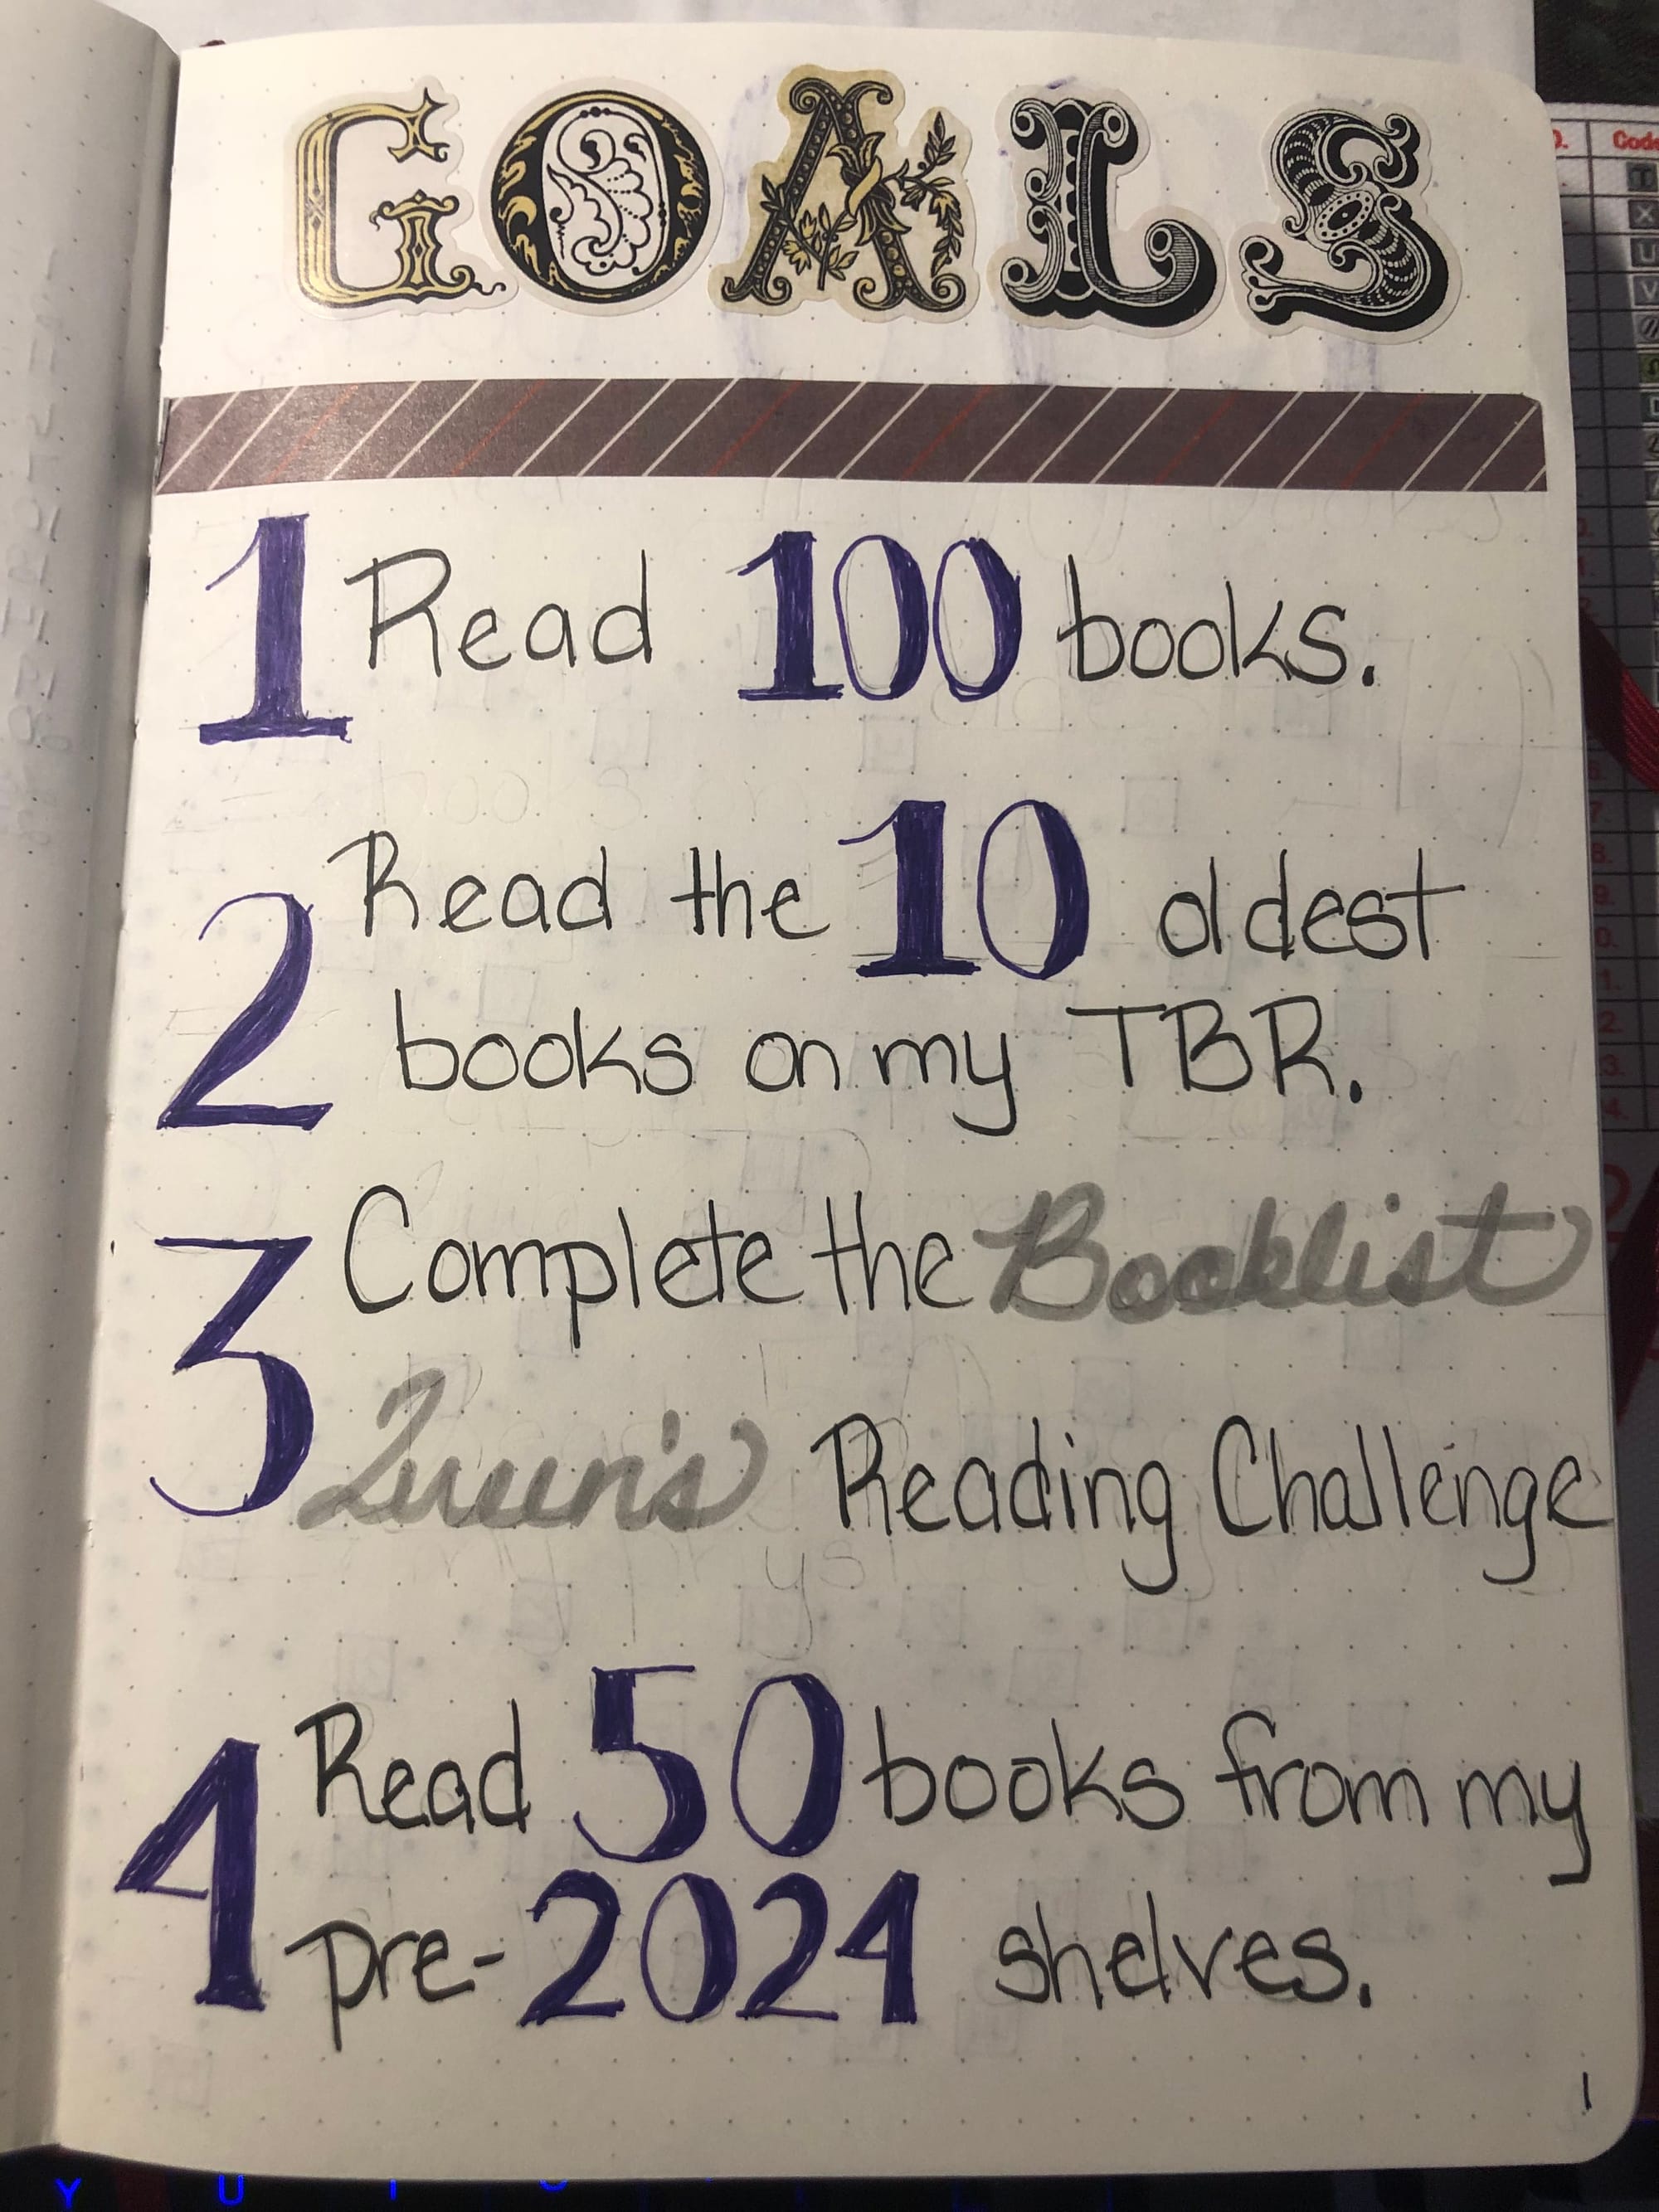 GOALS
1 Read 100 books.
2 Read the 10 oldest
books on my TBR.
3 Complete the Booklist
Queen's Reading Challenge
4 Read 50 books from my
pre-2024 shelves.
1
Code
Y U I O